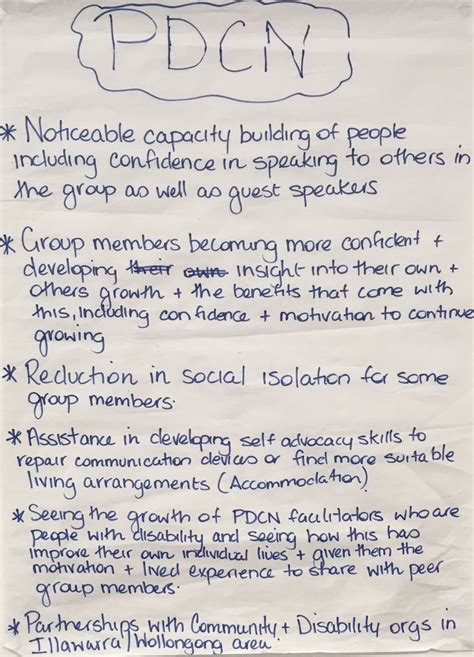 PDCN
* Noticeable capacity building of people
including confidence in speaking to others in
the group as well as guest speakers
* Group members becoming more confident +
developing their own insight into their own +
others growth + the benefits that come with
this, including confidence + motivation to continue
growing
* Reduction in social isolation for some
group members.
* Assistance in developing self advocacy skills to
repair communication devices or find more suitable
living arrangements (Accommodation)
* Seeing the growth of PDCN facilitators who are
people with disability and seeing how this has
improve their own individual lives + given them the
motivation + lived experience to share with peer
group members.
* Partnerships with Community + Disability orgs in
Illawarra/Wollongong area.